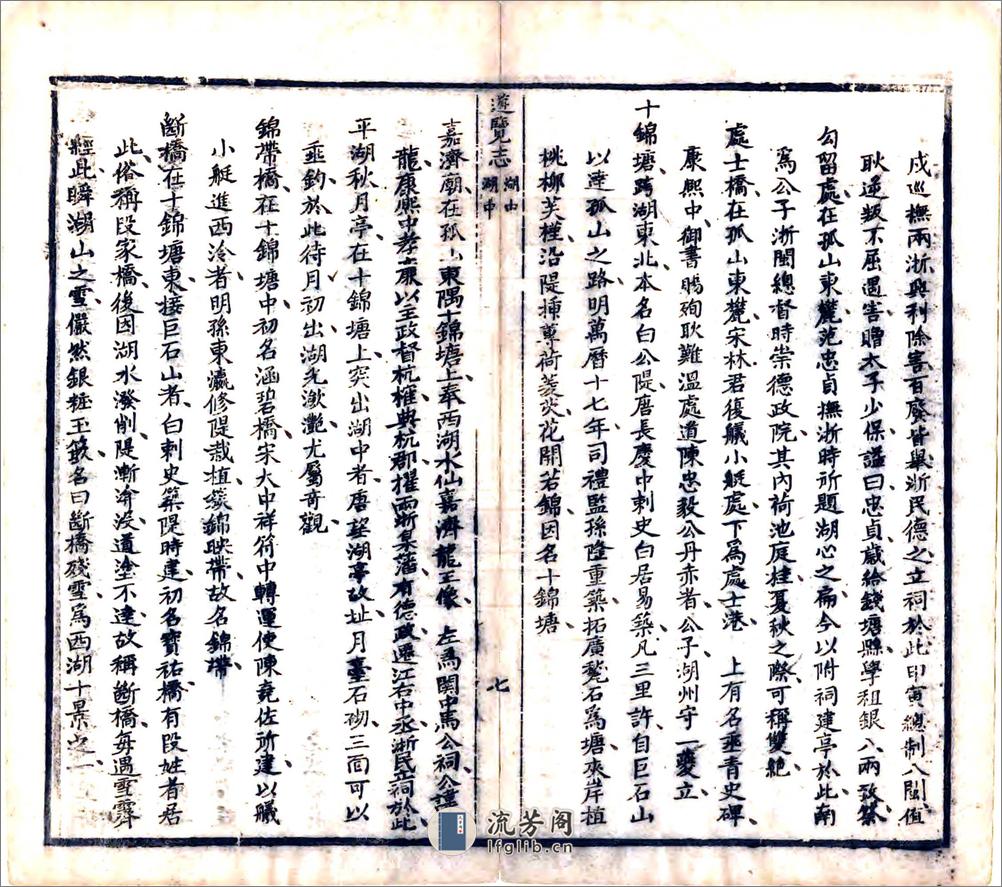 戊巡撫兩浙興利除害百廢皆舉浙民德之立祠於此甲寅總制八閩值
耿逆叛不屈遇害贈太子少保謚曰忠貞歲給錢塘縣學租銀八兩致祭
勾留處在孤山東麓范忠貞撫浙時所題湖心之扁今以附祠建亭於此南
爲公子浙閩總督時崇德政院其內荷池庭桂夏秋之際可稱雙絶
處士橋在孤山東麓宋林君復艤小艇處下爲處士港 上有名垂青史碑
康熙中御書賜殉耿難溫處道陳忠毅公丹赤者公子湖州守一夔立
十錦塘跨湖東北本名白公隄唐長慶中刺史白居易築凡三里許自巨石山
以達孤山之路明萬曆十七年司禮監孫隆重築拓廣甃石爲塘夾岸植
桃柳芙槿沿隄揷蓴荷菱芡花開若錦因名十錦塘
遊覽志 湖中 湖中 七
嘉濟廟在孤山東隅十錦塘上奉西湖水仙嘉濟龍王像 左爲關中馬公祠公
龍康熙中孝廉以王政督杭榷典杭郡擢兩浙臬藩有德政遷江右中丞浙民立祠於此
平湖秋月亭在十錦塘上突出湖中者唐望湖亭故址月臺石砌三面可以
垂釣於此待月初出湖光瀲灧尤屬奇觀
錦帶橋在十錦塘中初名涵碧橋宋大中祥符中轉運使陳堯佐所建以艤
小艇進西泠者明孫東瀛修隄栽植簇錦映帶故名錦帶
斷橋在十錦塘東接巨石山者白刺史築隄時建初名寶祐橋有段姓者居
此俗稱段家橋後因湖水潑削隄漸渰没道塗不達故稱斷橋每遇雪霽
經此瞬湖山之雪儼然銀粧玉簌名曰斷橋殘雪爲西湖十景之一
流芳阁
lfglib.cn